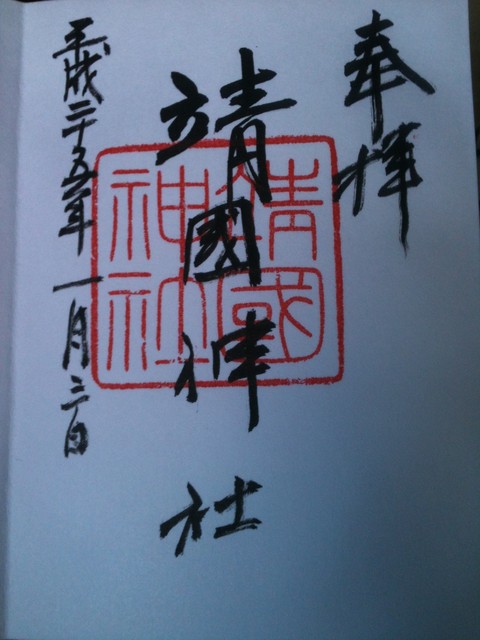 奉拝
靖國神社
平成二十五年一月三日
靖國
神社